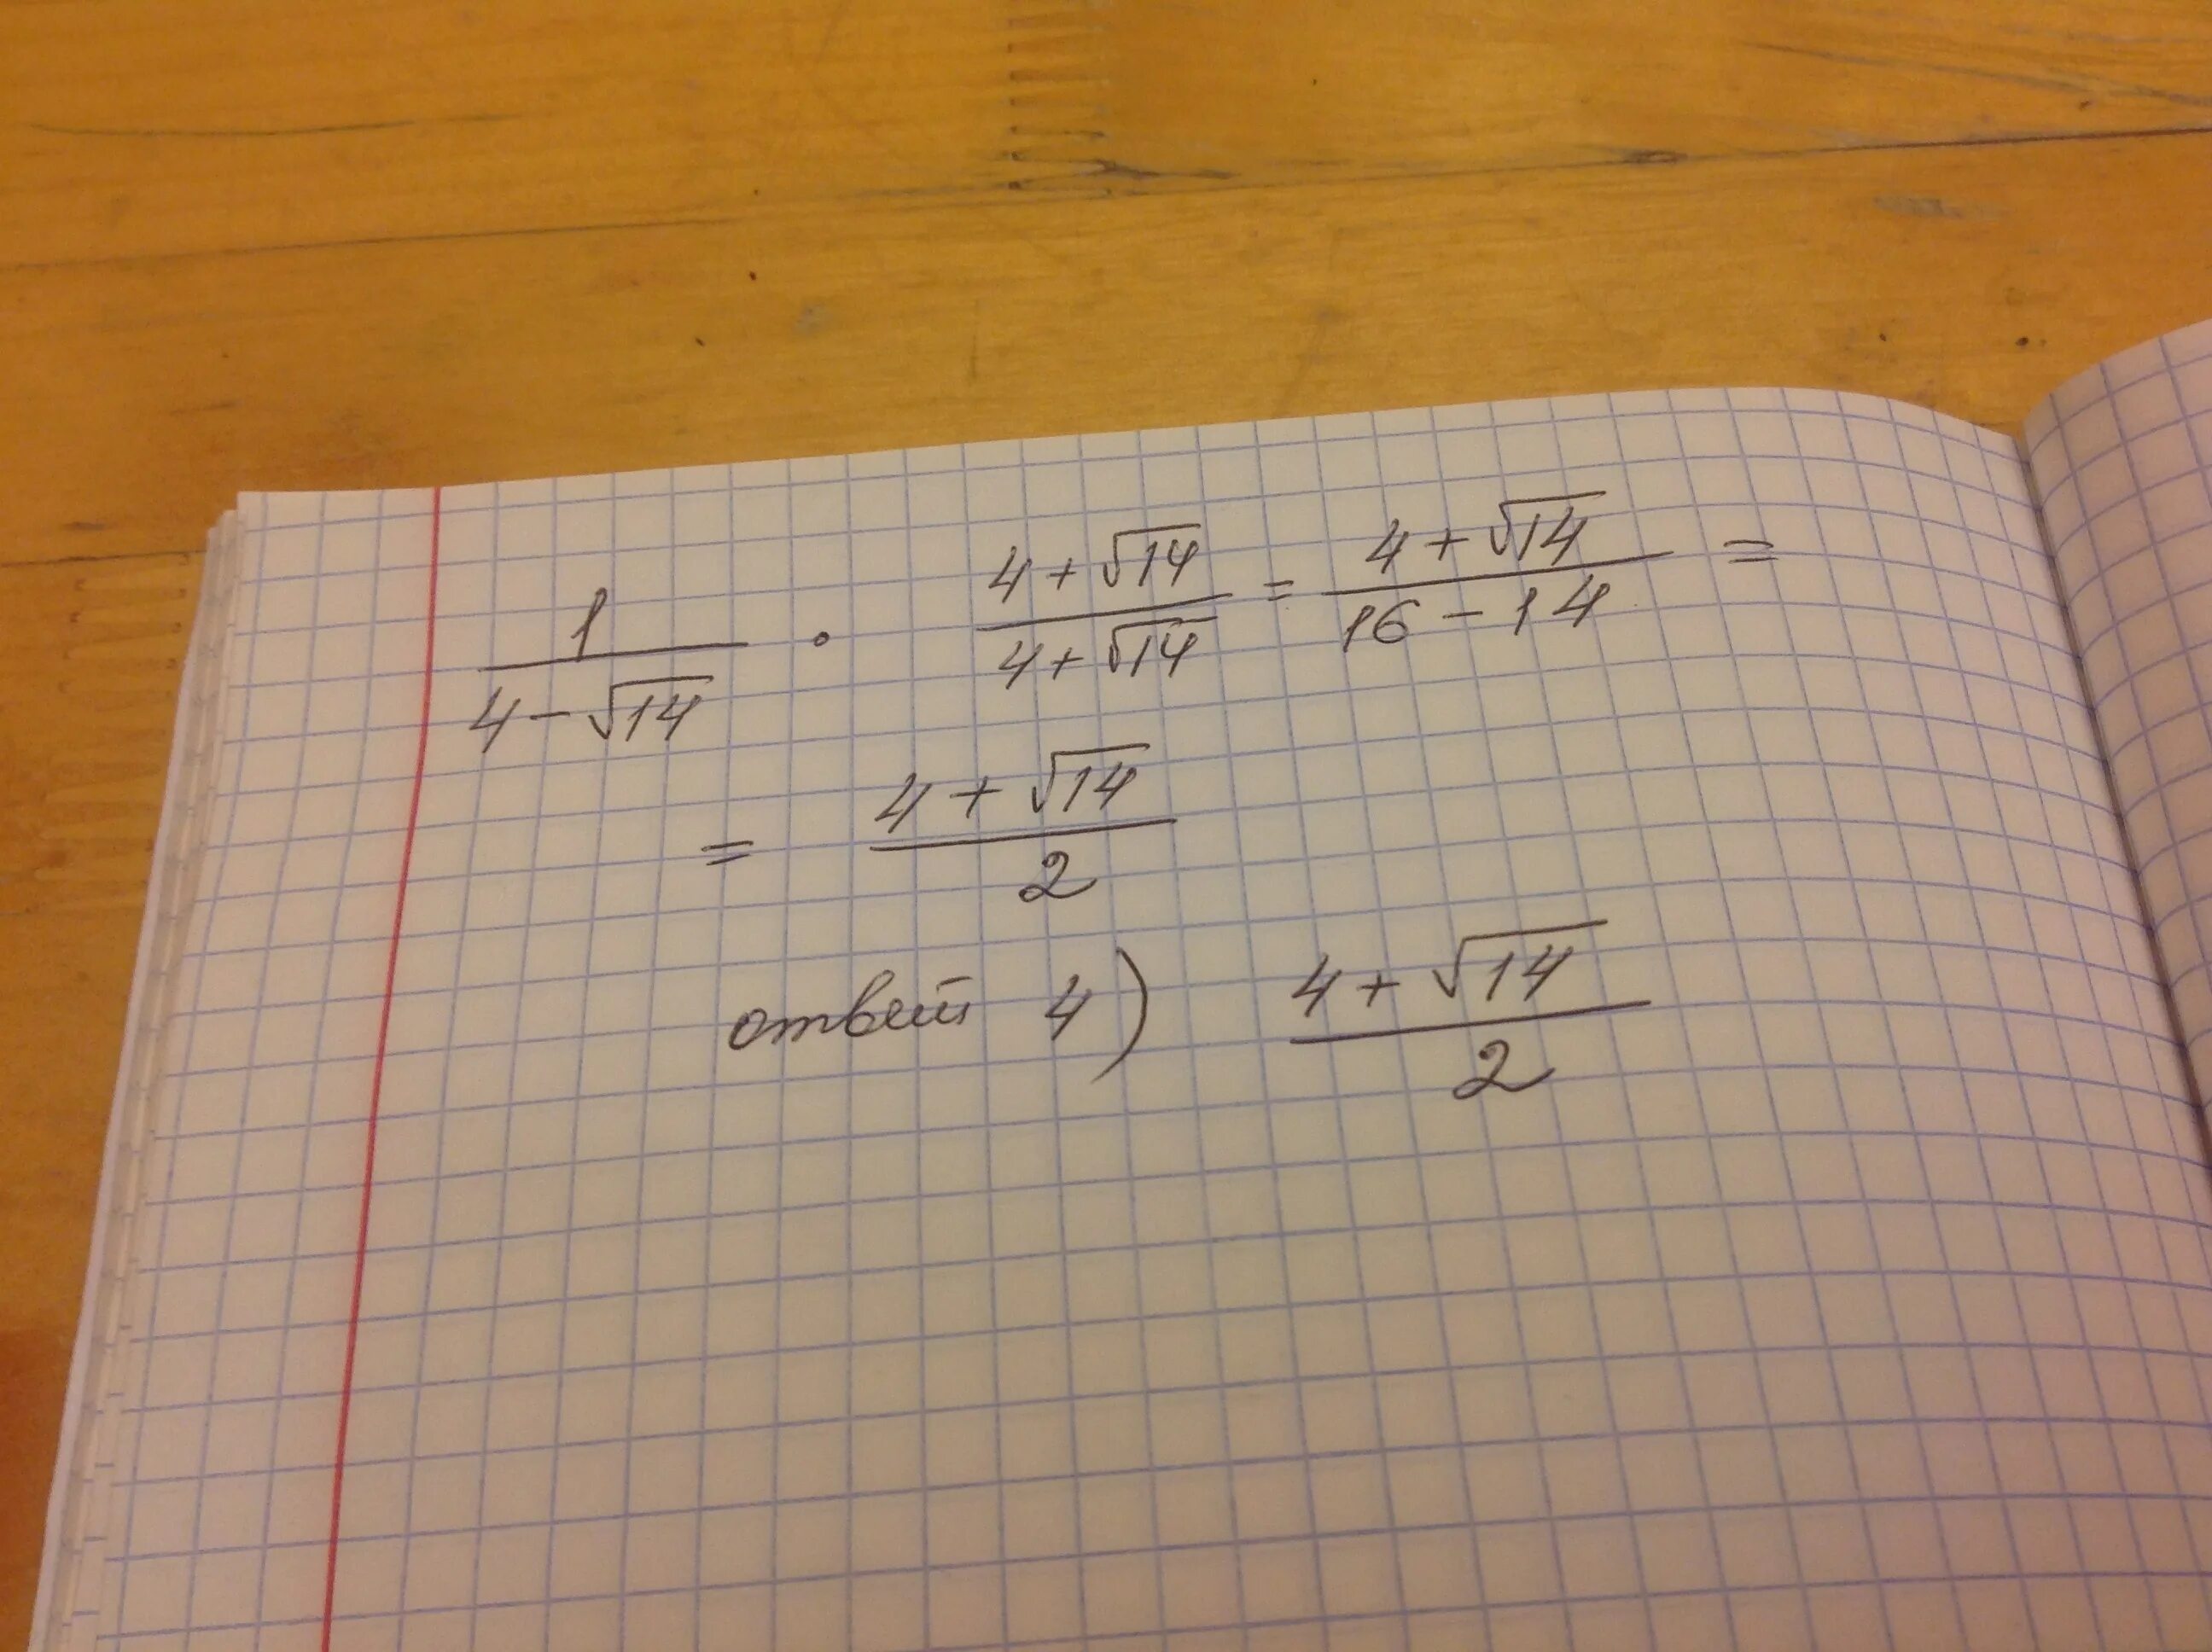 1/(4-√14) · (4+√14)/(4+√14) = (4+√14)/(16-14) =
= (4+√14)/2
ответ 4) (4+√14)/2